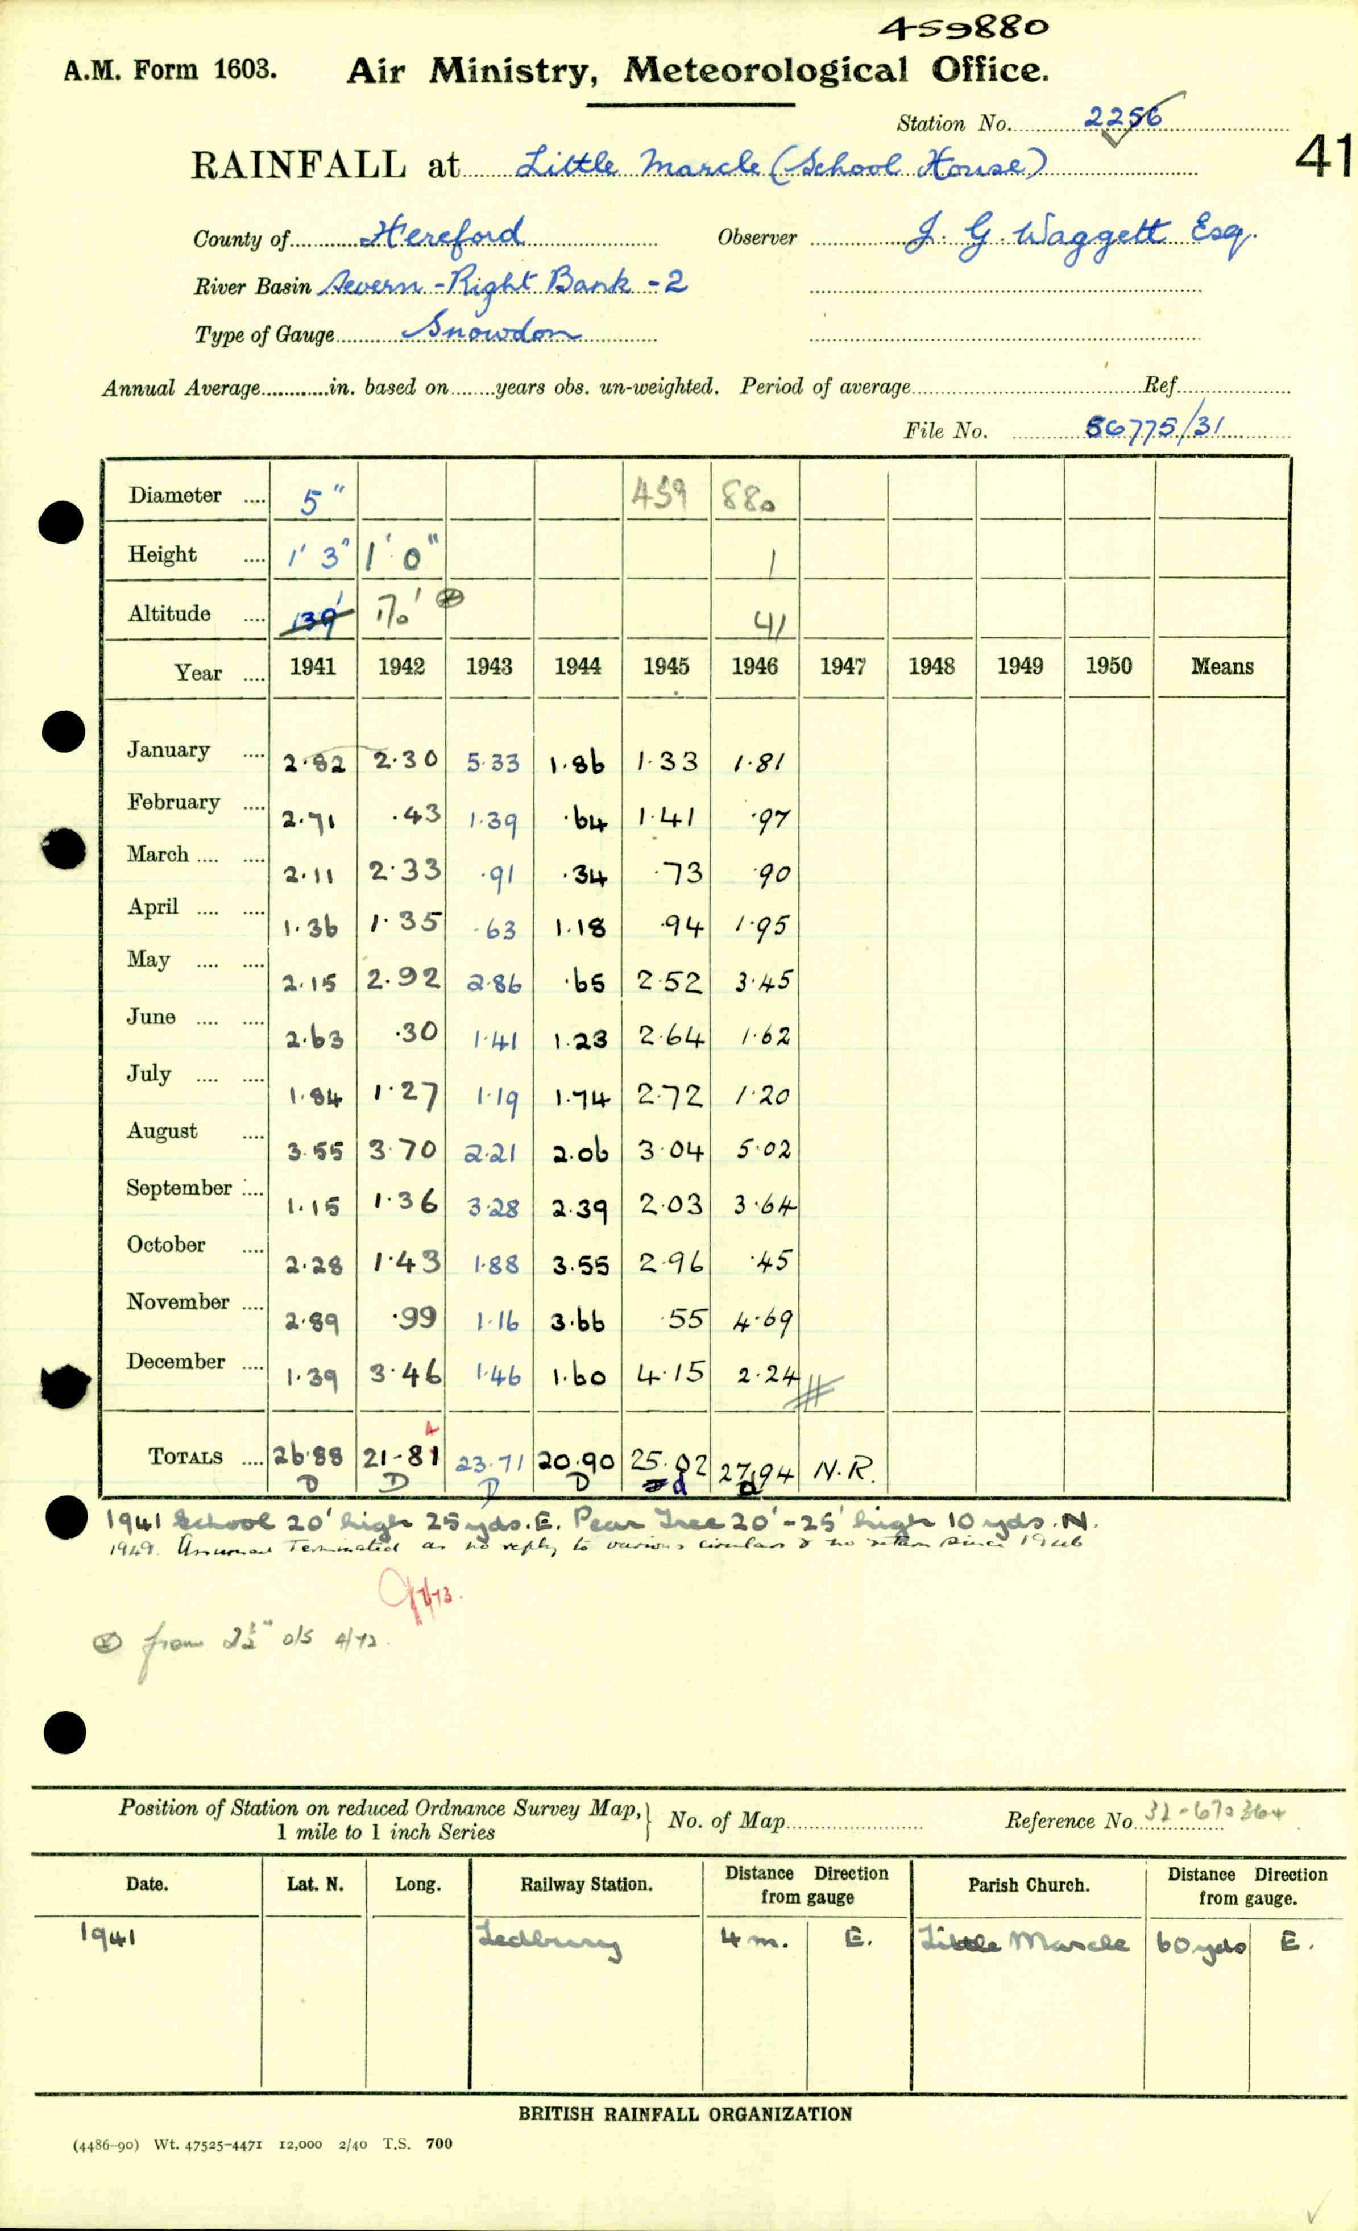 459880
A.M. Form 1603. Air Ministry, Meteorological Office.
Station No. 2256
RAINFALL at Little Marcle (School House) 41
County of Hereford Observer J. G. Waggett Esq.
River Basin Severn - Right Bank - 2
Type of Gauge Snowdon
Annual Average in. based on years obs. un-weighted. Period of average Ref.
File No. 86775/31
Diameter 5" 459 880
Height 1' 3" 1' 0" 1
Altitude 139' 170' 41
Year 1941 1942 1943 1944 1945 1946 1947 1948 1949 1950 Means
January 2.82 2.30 5.33 1.86 1.33 1.81
February 2.71 .43 1.39 .64 1.41 .97
March 2.11 2.33 .91 .34 .73 .90
April 1.36 1.35 .63 1.18 .94 1.95
May 2.15 2.92 2.86 .65 2.52 3.45
June 2.63 .30 1.41 1.23 2.64 1.62
July 1.84 1.27 1.19 1.74 2.72 1.20
August 3.55 3.70 2.21 2.06 3.04 5.02
September 1.15 1.36 3.28 2.39 2.03 3.64
October 2.28 1.43 1.88 3.55 2.96 .45
November 2.89 .99 1.16 3.66 .55 4.69
December 1.39 3.46 1.46 1.60 4.15 2.24
4
TOTALS 26.88 21.81 23.71 20.90 25.02 27.94 N.R.
D D D D d d
1941 School 20' high 25 yds. E. Pear Tree 20'-25' high 10 yds. N.
1949. Assumed Terminated as no reply to various circulars & no return since 1946
from 2½" o/s 4/72.
Position of Station on reduced Ordnance Survey Map, No. of Map Reference No. 32-670364
1 mile to 1 inch Series
Date. Lat. N. Long. Railway Station. Distance Direction from gauge Parish Church. Distance Direction from gauge.
1941 Ledbury 4 m. E. Little Marcle 60 yds E.
BRITISH RAINFALL ORGANIZATION
(4486-90) Wt. 47525-4471 12,000 2/40 T.S. 700